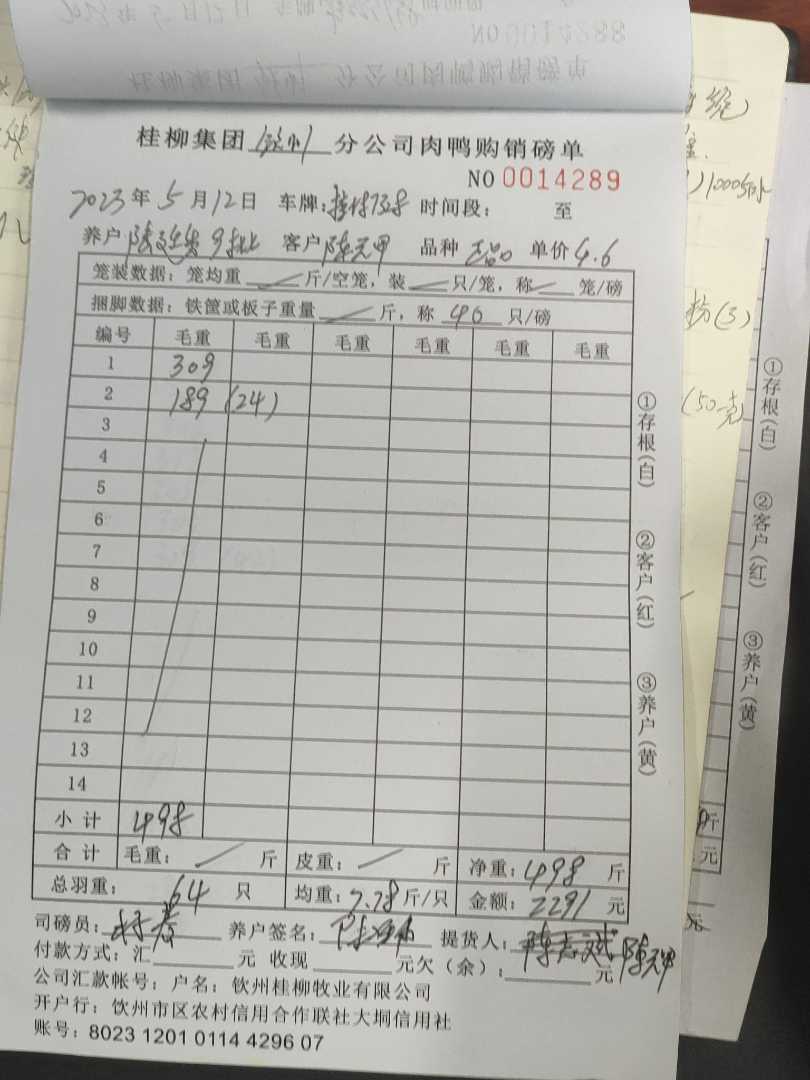 桂柳集团 钦州 分公司肉鸭购销磅单
NO 0014289
2023年5月12日 车牌: 时间段: 至
养户 客户 陈元甲 品种 正品 单价 4.6
笼装数据: 笼均重 斤/空笼, 装 只/笼, 称 笼/磅
捆脚数据: 铁筐或板子重量 斤, 称 40 只/磅
编号 毛重 毛重 毛重 毛重 毛重 毛重
1 309
2 189 (24)
3
4
5
6
7
8
9
10
11
12
13
14
小计 498
合计 毛重: 斤 皮重: 斤 净重: 498 斤
总羽重: 64 只 均重: 7.78 斤/只 金额: 2291 元
司磅员: 养户签名: 提货人: 陈元甲
付款方式: 汇 元 收现 元欠(余): 元
公司汇款帐号: 户名: 钦州桂柳牧业有限公司
开户行: 钦州市区农村信用合作联社大垌信用社
账号: 8023 1201 0114 4296 07
①存根(白)
②客户(红)
③养户(黄)
①存根(白)
②客户(红)
③养户(黄)
(50克)
斤
元